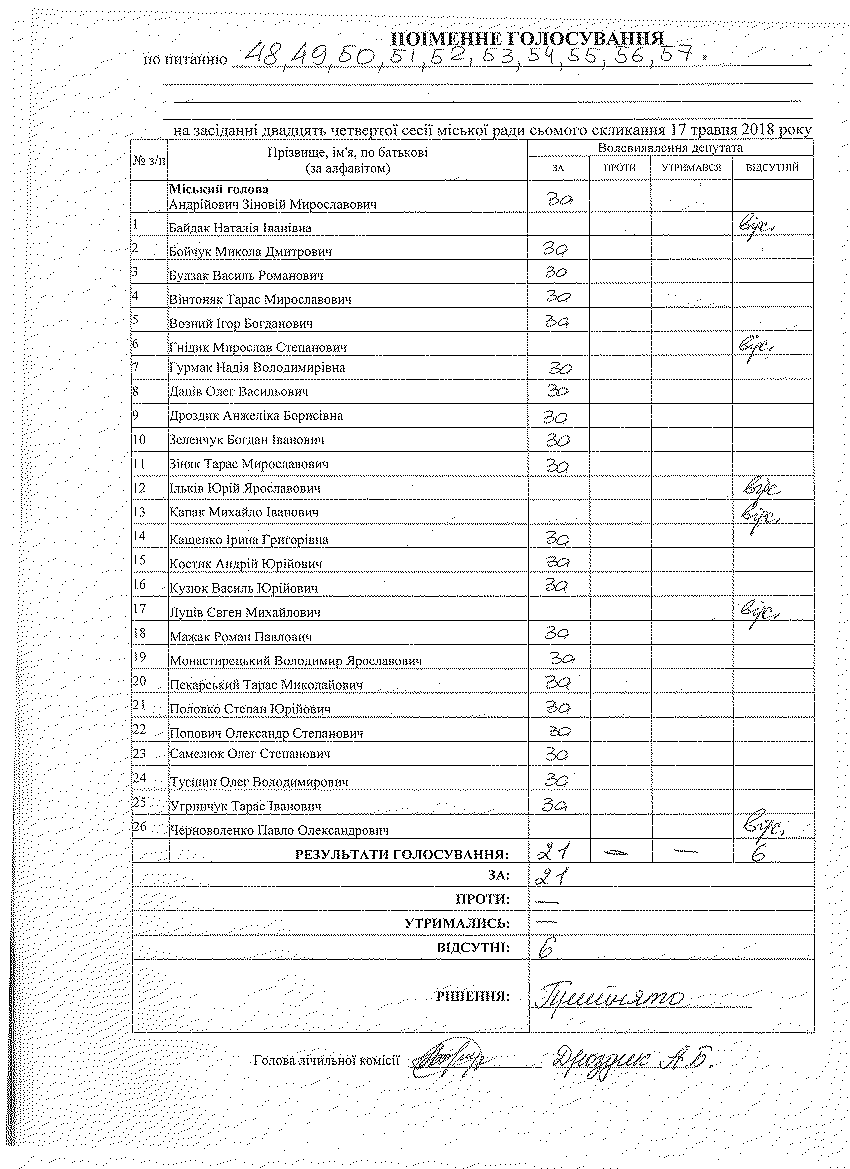 ПОІМЕННЕ ГОЛОСУВАННЯ
по питанню 48,49,50,51,52,53,54,55,56,57.
на засіданні двадцять четвертої сесії міської ради сьомого скликання 17 травня 2018 року
№ з/п Прізвище, ім'я, по батькові (за алфавітом) Волевиявлення депутата
ЗА ПРОТИ УТРИМАВСЯ ВІДСУТНІЙ
Міський голова
Андрійович Зіновій Мирославович за
1 Байдак Наталія Іванівна відс.
2 Бойчук Микола Дмитрович за
3 Булзак Василь Романович за
4 Вінтоняк Тарас Мирославович за
5 Возний Ігор Богданович за
6 Гнідик Мирослав Степанович відс.
7 Гурмак Надія Володимирівна за
8 Даців Олег Васильович за
9 Дроздик Анжеліка Борисівна за
10 Зеленчук Богдан Іванович за
11 Зіняк Тарас Мирославович за
12 Ільків Юрій Ярославович відс
13 Капак Михайло Іванович відс.
14 Кащенко Ірина Григорівна за
15 Костяк Андрій Юрійович за
16 Кузюк Василь Юрійович за
17 Луців Євген Михайлович відс.
18 Мажак Роман Павлович за
19 Монастирецький Володимир Ярославович за
20 Пекарський Тарас Миколайович за
21 Половко Степан Юрійович за
22 Попович Олександр Степанович за
23 Самелюк Олег Степанович за
24 Тусшин Олег Володимирович за
25 Угринчук Тарас Іванович за
26 Черноволенко Павло Олександрович відс.
РЕЗУЛЬТАТИ ГОЛОСУВАННЯ: 21 — — 6
ЗА: 21
ПРОТИ: —
УТРИМАЛИСЬ: —
ВІДСУТНІ: 6
РІШЕННЯ: Прийнято
Голова лічильної комісії Дроздик А.Б.